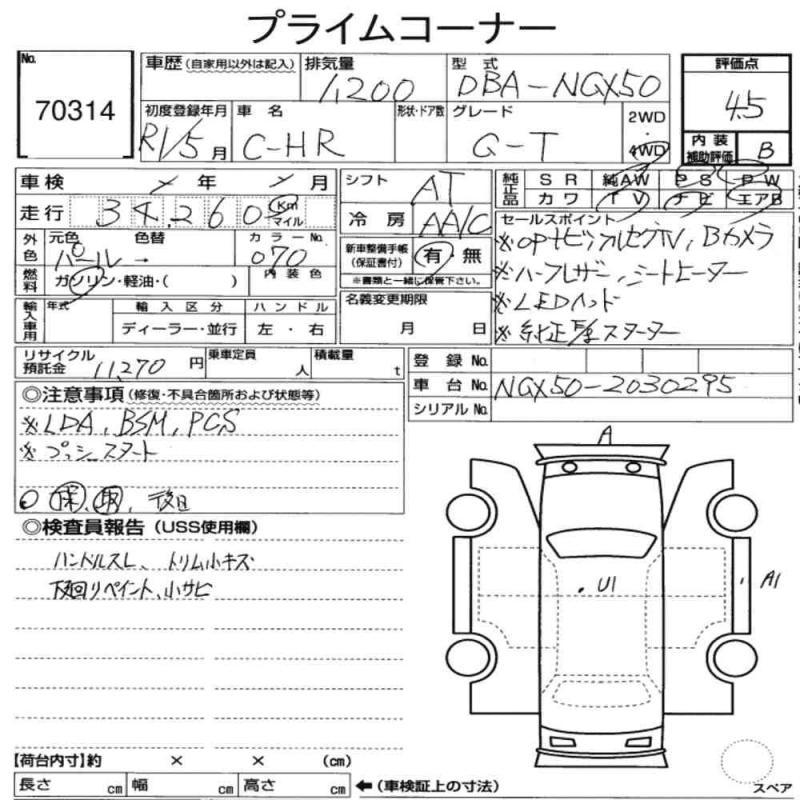 プライムコーナー
No. 70314
車歴 (自家用以外は記入)
排気量 1,200
型式 DBA-NGX50
評価点 4.5
内装補助評価 B
初度登録年月 R1/5月
車名 C-HR
形状・ドア数
グレード G-T
2WD・4WD
車検 年 月
走行 34,260 Km マイル
外色 元色 パール → 色替
カラーNo. 070
燃料 ガソリン・軽油・( )
内装色
輸入車用 年式
輸入区分 ディーラー・並行
ハンドル 左・右
シフト AT
冷房 AA/C
新車整備手帳(保証書付) 有・無
※書類と一緒に保管下さい。
名義変更期限 月 日
純正品 SR 純AW PS PW
カワ TV ナビ エアB
セールスポイント
※OPナビフルセグTV、Bカメラ
※ハーフレザー、シートヒーター
※LEDヘッド
※純正 スターター
リサイクル預託金 11,270円
乗車定員 人
積載量 t
登録No.
車台No. NGX50-2030295
シリアルNo.
◎注意事項 (修復・不具合箇所および状態等)
※LDA、BSM、PCS
※プッシュスタート
保 取 後日
◎検査員報告 (USS使用欄)
ハンドルスレ、トリム小キズ
下廻りペイント、小サビ
A
U1
A1
【荷台内寸】約 × × (cm)
長さ cm 幅 cm 高さ cm ←(車検証上の寸法)
スペア